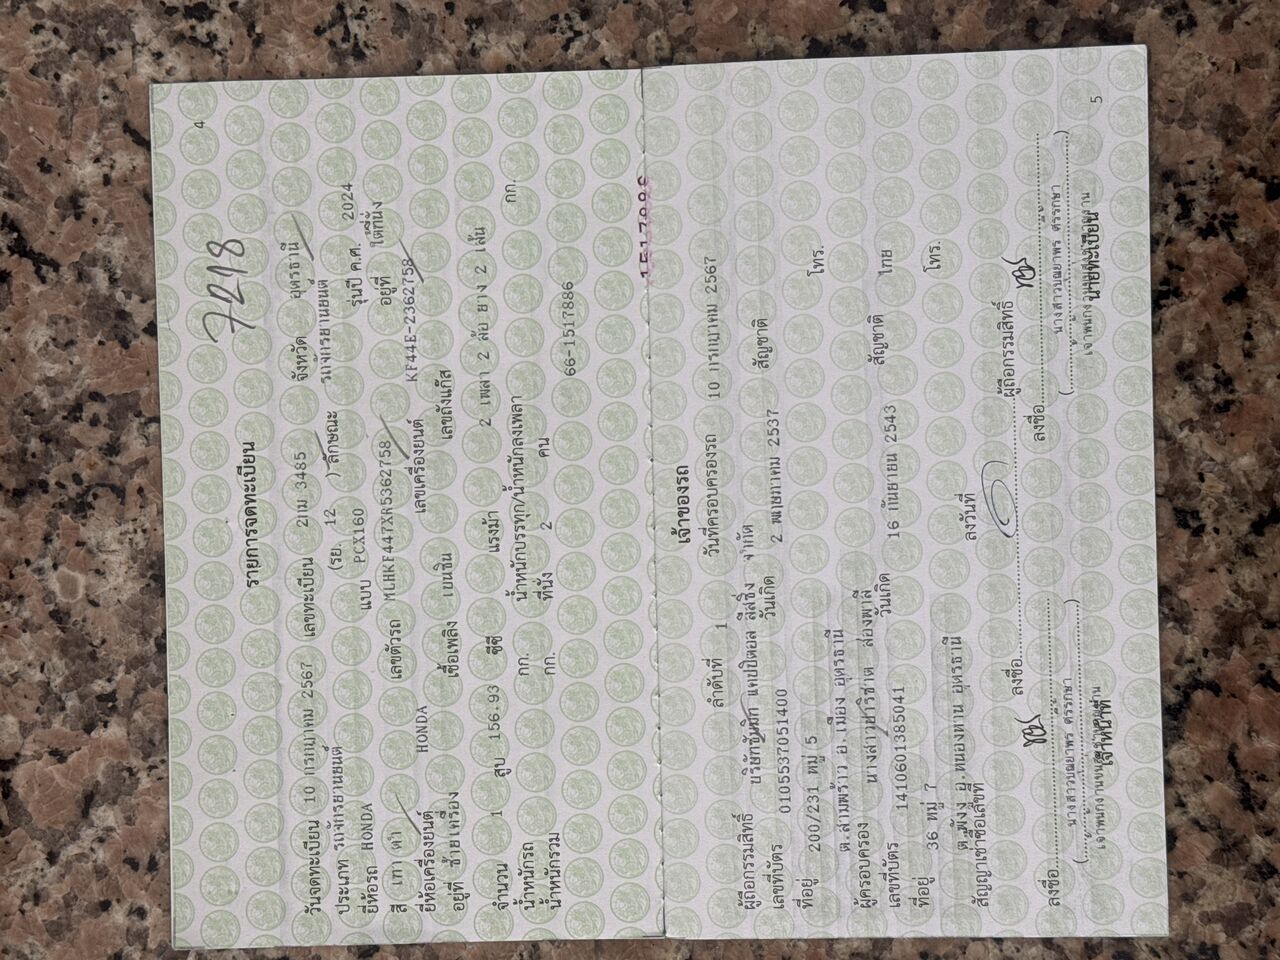 4
7218
รายการจดทะเบียน
วันจดทะเบียน 10 กรกฎาคม 2567 เลขทะเบียน 2กม 3485 จังหวัด อุดรธานี
ประเภท รถจักรยานยนต์ (รย. 12 ) ลักษณะ รถจักรยานยนต์
ยี่ห้อรถ HONDA แบบ PCX160 รุ่นปี ค.ศ. 2024
สี เทา ดำ เลขตัวรถ MLHKF447XR5362758 อยู่ที่ ใต้ที่นั่ง
ยี่ห้อเครื่องยนต์ HONDA เลขเครื่องยนต์ KF44E-2362758
อยู่ที่ ซ้ายเครื่อง เชื้อเพลิง เบนซิน เลขถังแก๊ส
จำนวน 1 สูบ 156.93 ซีซี แรงม้า 2 เพลา 2 ล้อ ยาง 2 เส้น
น้ำหนักรถ กก. น้ำหนักบรรทุก/น้ำหนักลงเพลา กก.
น้ำหนักรวม กก. ที่นั่ง 2 คน
66-1517886
เจ้าของรถ
ลำดับที่ 1 วันที่ครอบครองรถ 10 กรกฎาคม 2567
ผู้ถือกรรมสิทธิ์ บริษัทซัมมิท แคปปิตอล ลีสซิ่ง จำกัด
เลขที่บัตร 0105537051400 วันเกิด 2 พฤษภาคม 2537 สัญชาติ
ที่อยู่ 200/231 หมู่ 5 โทร.
ต.สามพร้าว อ.เมือง อุดรธานี
ผู้ครอบครอง นางสาวปาริชาต ส่องพาลี
เลขที่บัตร 1410601385041 วันเกิด 16 กันยายน 2543 สัญชาติ ไทย
ที่อยู่ 36 หมู่ 7 โทร.
ต.พังงู อ.หนองหาน อุดรธานี
สัญญาเช่าซื้อเลขที่ ลงวันที่
ลงชื่อ ผู้ถือกรรมสิทธิ์
ลงชื่อ ลงชื่อ
เจ้าหน้าที่ นายทะเบียน
5